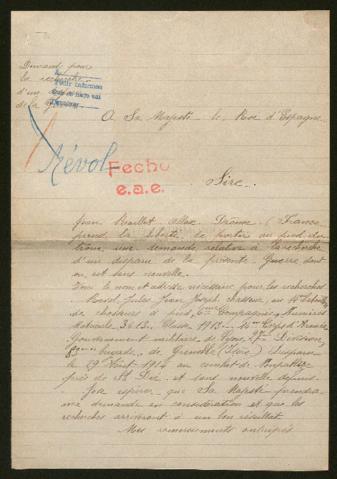 Demande pour
la recherche
d'un
de la
Pedir informes
A Sa Majesté le Roi d'Espagne
Révol
Fecho
e.a.e.
Sire
Jean Allex Drôme (France
prend la liberté de porter au pied du
trône une demande relative à la recherche
d'un disparu de la présente Guerre dont
on est sans nouvelle.
Voici le nom et adresse nécessaire pour les recherches
Jules Jean Joseph chasseur au
de chasseurs à pied, 6ème Compagnie, Numéro
Matricule 3613. Classe 1913 - 14ème Corps d'Armée
Gouvernement militaire de Lyon, 27ème Division,
brigade, de Grenoble (Isère) Disparu
le 29 Août 1914 au combat de
près de St Dié et sans nouvelle depuis.
J'ose espérer que Sa Majesté prendra
ma demande en considération et que les
recherches arriveront à un bon résultat
Mes remerciements anticipés